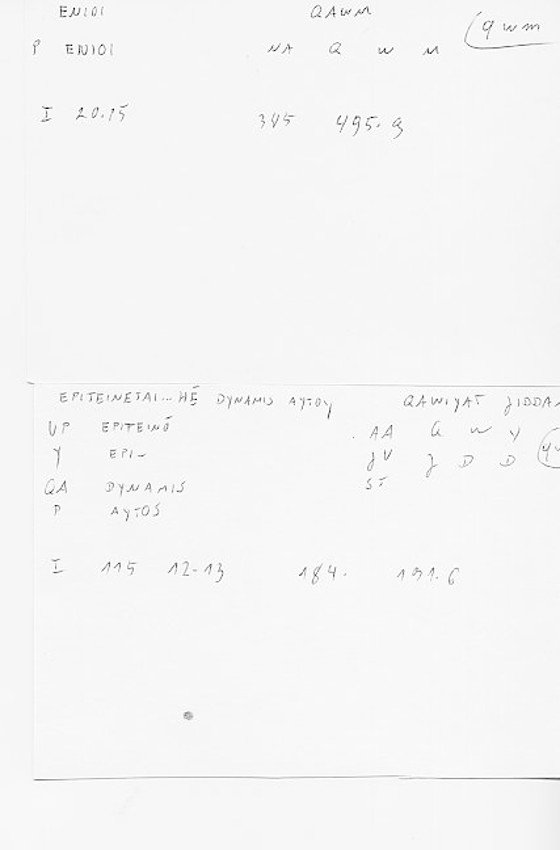 ENIOI QAWM
P ENIOI NA Q W M (qwm
I 20.15 345 495.9
EPITEINETAI... HĒ DYNAMIS AYTOY QAWIYAT JIDDA
VP EPITEINŌ . AA Q W Y
Y EPI- JV J D D
QA DYNAMIS ST
P AYTOS
I 115 12-13 184. 191.6